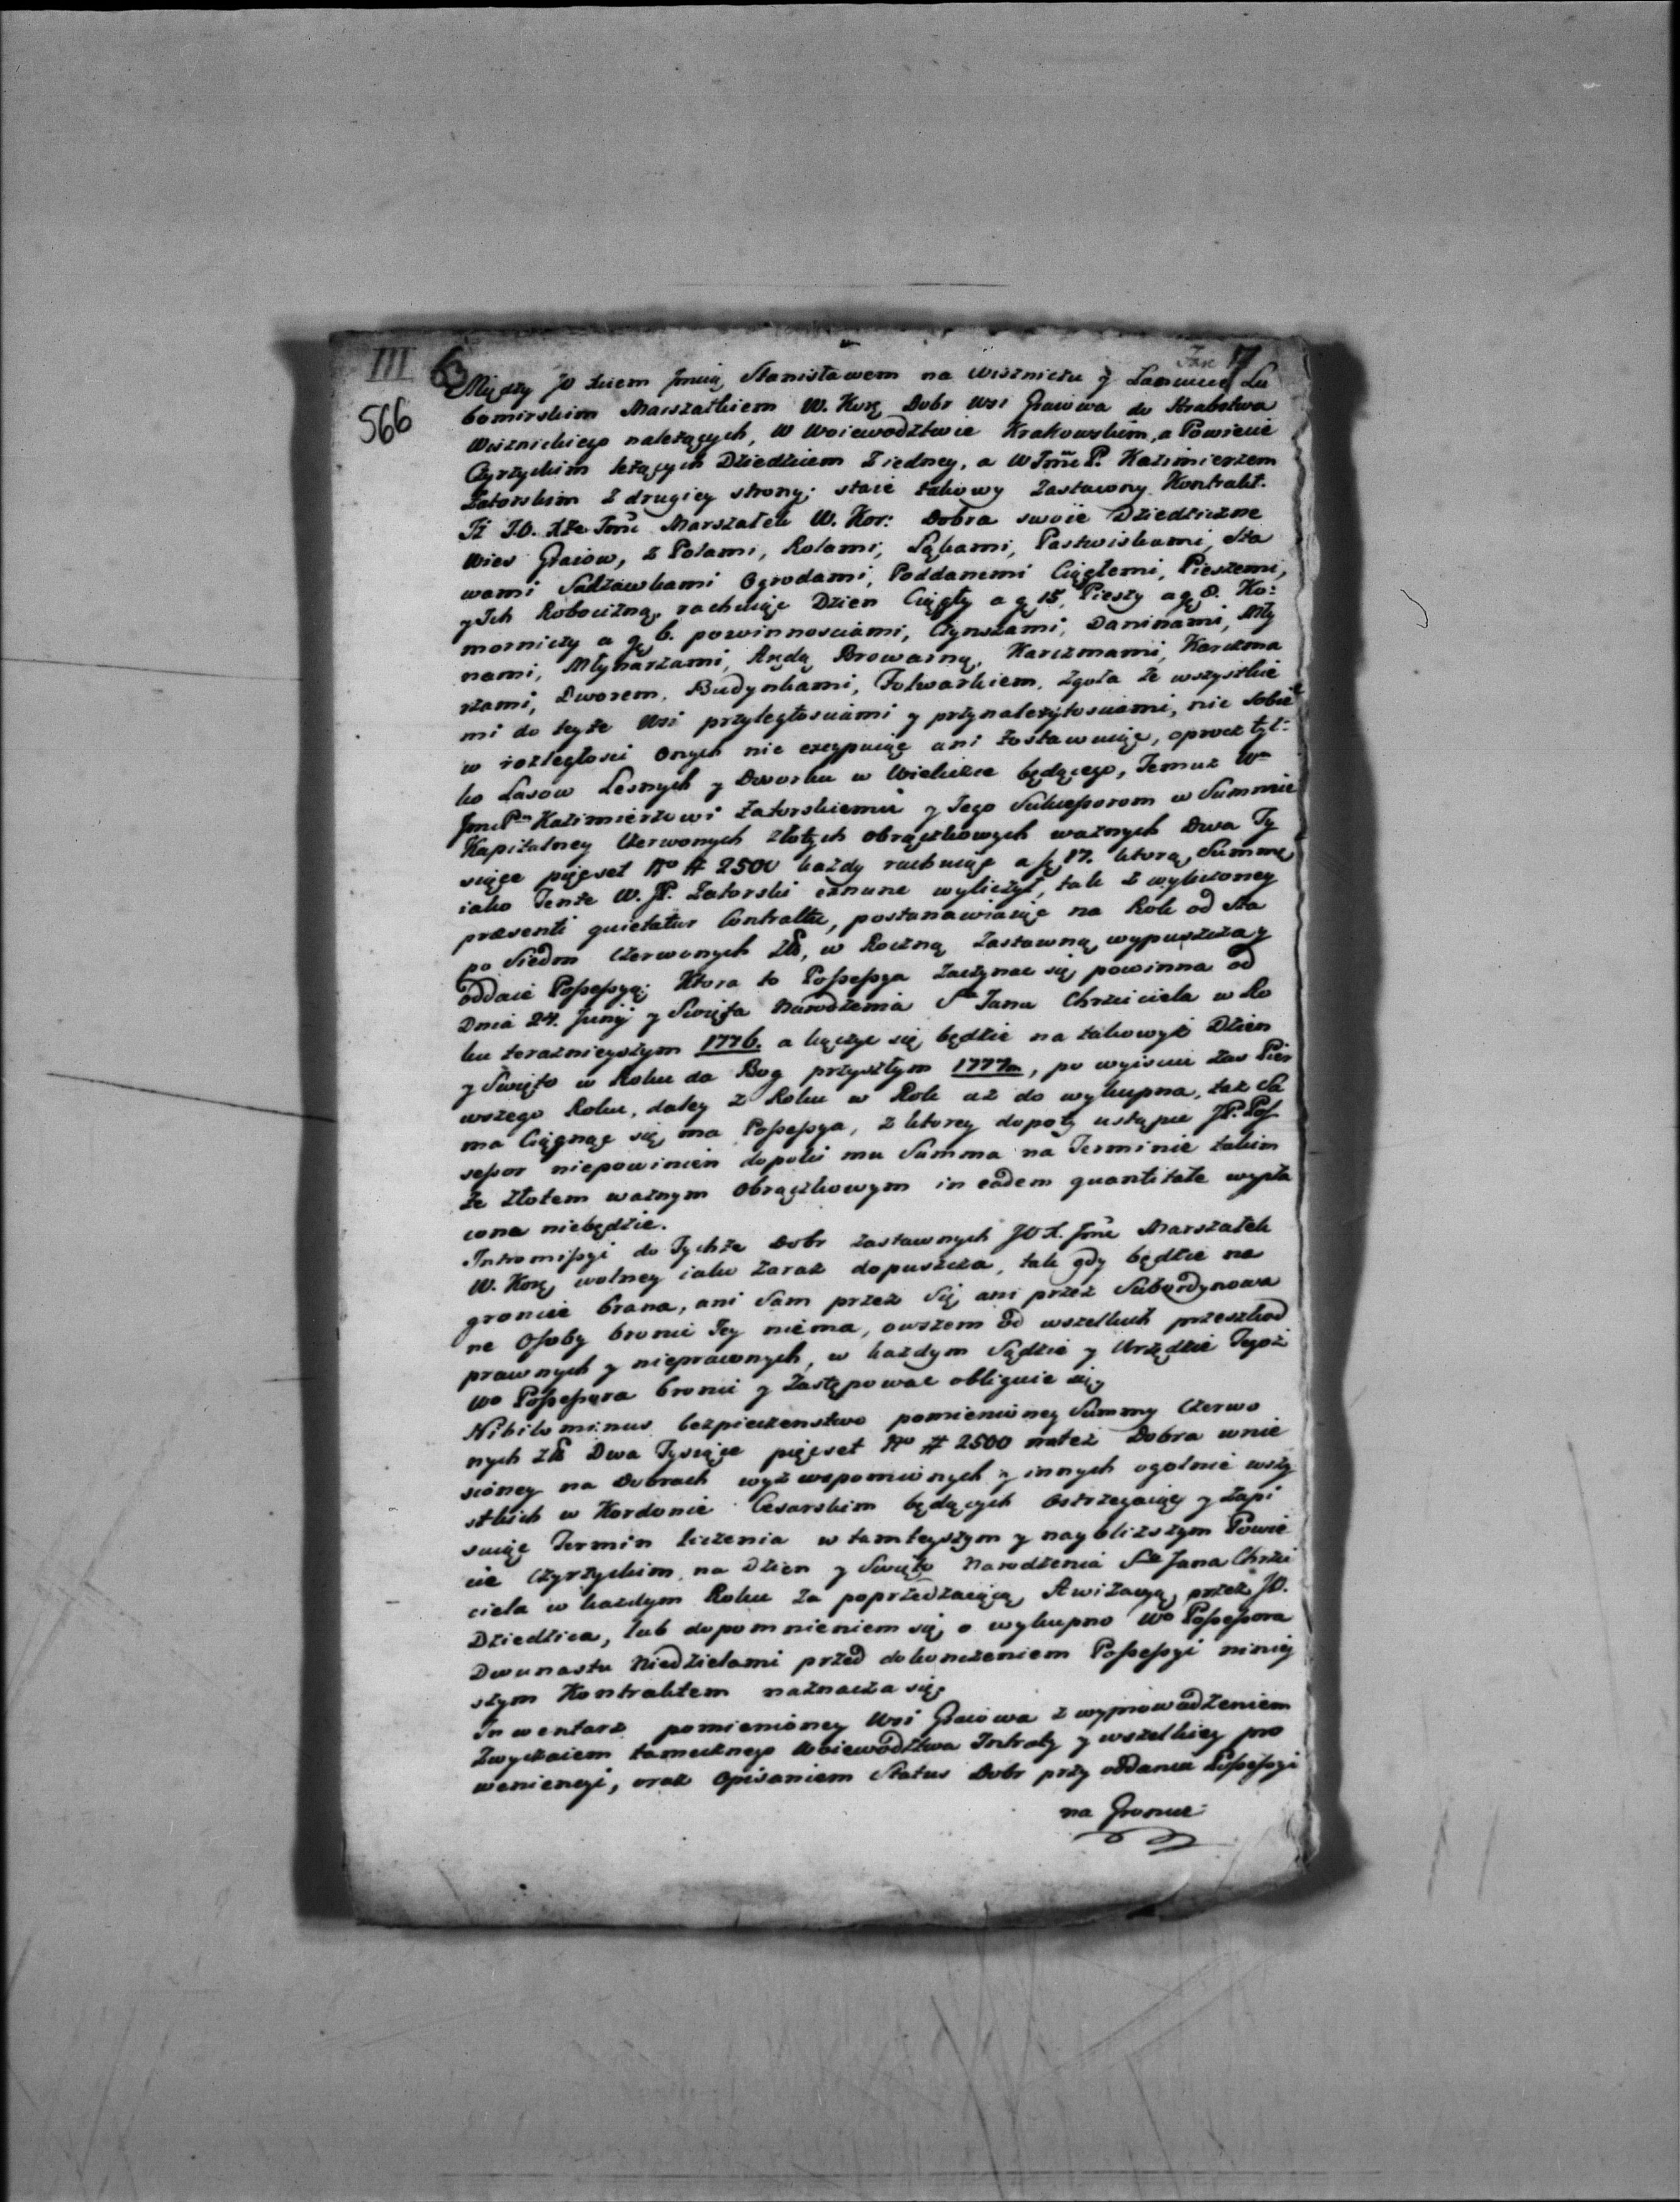 III 63
566
Między JO Xciem Jmcią Stanisławem na Wiszniczu y Lancucie Lu
bomirskim Marszałkiem W. Korę Dobr Wsi Graiowa do Hrabstwa
Wiznickiego należących, w Woiewodztwie Krakowskim, a Powiecie
Czyrzyckim leżących Dziedzicem z iedney, a W Jmc P. Kazimierzem
Zatorskim z drugiey strony; staie takowy Zastawny Kontrakt.
Iż J.O. Xże Jmć Marszałek W. Kor: Dobra swoie Dziedziczne
Wies Graiow, z Polami, Rolami, Łąkami, Pastwiskami, Sta
wami Sadzawkami Ogrodami, Poddanemi Ciągłemi, Pieszemi,
y Ich Robocizną, rachuiąc Dzien Ciągły a gę 15, Pieszy a gę 8. Ko:
morniczy a gę 6. powinnosciami, Czynszami, Daninami, Mły
nami, Młynarzami, Arędą Browarną, Karczmami, Karczma
rzami, Dworem, Budynkami, Folwarkiem, zgoła ze wszystkie
mi do teyże Wsi przyległosciami y przynależytosciami, nic sobie
w rozległosci onych nie excypuiąc ani zostawuiąc, oprocz tyl:
ko Lasow Lesnych y Dworku w Wieliczce będącego, Temuz Wu
Jmc Pu Kazimierzowi Zatorskiemu y Jego Sukcessorom w Summie
Kapitalney Czerwonych Złotych obrączkowych ważnych Dwa Ty
siące pięcset No # 2500 każdy rachuiąc a fę 17. ktorą Summę
iako Tenże W. JP. Zatorski wyliczył, tak z wyliczoney
præsenti quietatur Contractu, postanawiaiąc na Rok od Sta
po Siedm Czerwonych Zł, w Roczną Zastawną wypuszcza y
oddaie Possessyą; Ktora to Possessya zaczynac się powinna od
Dnia 24. Junij y Swięta Narodzenia Sgo Jana Chrzciciela w Ro
ku teraznieyszym 1776. a kączyc się będzie na takowyż Dzien
y Swięto w Roku da Bog przyszłym 1777m, po wyisciu zas Pier
wszego Roku, daley z Roku w Rok aż do wykupna, taż Sa
ma Ciągnąc się ma Possessya, z ktorey dopoty ustąpic JP. Pos
sessor niepowinien dopoki mu Summa na Terminie takim
że złotem ważnym Obrączkowym in eadem quantitate wypła
cona niebędzie.
Intromissyi do Tychże Dobr zastawnych JOX. Jmć Marszałek
W. Korę wolney iako zaraz dopuszcza, tak gdy będzie na
groncie brana, ani Sam przez Się ani przez Subordynowa
ne Osoby bronic Jey niema, owszem od wszelkich przeszkod
prawnych y nieprawnych, w każdym Sądzie y Urzędzie Tegoż
Wo Possessora bronic y Zastępowac obliguie się,
Nihilominus bezpieczenstwo pomienioney Summy Czerwo
nych Zł Dwa Tysiące pięcset No # 2500 na też Dobra wnie
sioney na Dobrach wyż wspomnionych y innych ogolnie wszy
stkich w Kordonie Cesarskim będących ostrzegaiąc y Zapi
suiąc Termin liczenia w tamteyszym y nayblizszym Powie
cie Czyrzyckim na Dzien y Swięto Narodzenia Sgo Jana Chrzci
ciela w każdym Roku za poprzedzaiącą Awizacyą przez JO.
Dziedzica, lub dopomnieniem się o wykupno Wo Possessora
Dwunastu Niedzielami przed dokonczeniem Possessyi niniey
szym Kontraktem naznacza się.
Inwentarz pomienioney Wsi Graiowa z wyprowadzeniem
Zwyczaiem tamecznego Woiewodztwa Intraty y wszelkiey pro
weniencyi, oraz opisaniem Status Dobr przy oddaniu Possessyi
na Groncie